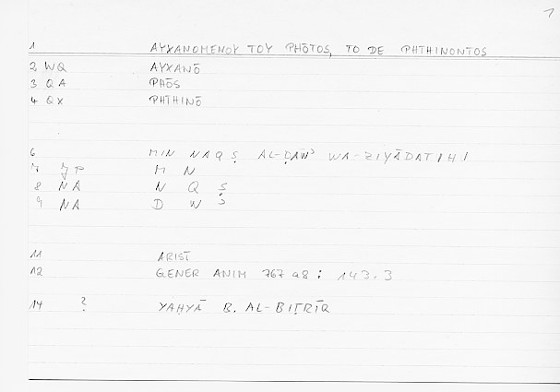 1
1 ΑYXANOMENOY TOY PHŌTOS, TO DE PHTHINONTOS
2 WQ AYXANŌ
3 QA PHŌS
4 QX PHTHINŌ
6 MIN NAQṢ AL-ḌAWʾ WA-ZIYĀDATIHI
7 JP M N
8 NA N Q Ṣ
9 NA Ḍ W ʾ
11 ARIST
12 GENER ANIM 767 a8 ; 143.3
14 ? YAḤYĀ B. AL-BIṬRĪQ